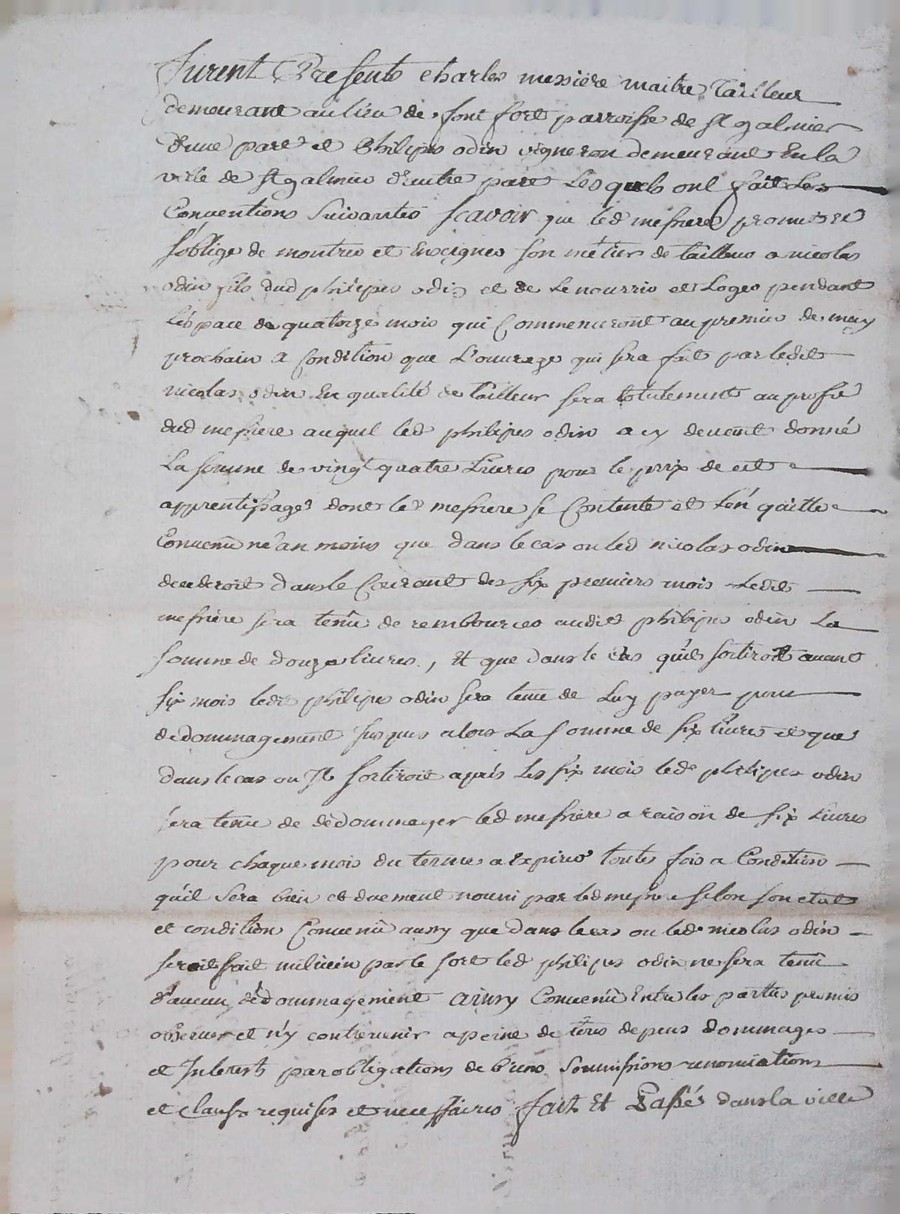 furent Presents charles messière maitre Tailleur
demeurant au lieu de font fort parroisse de st galmier
d'une part et Philipes odin vigneron demeurant En la
ville de st galmier d'autre part Lesquels ont fait Les
Conventions Suivantes Scavoir que led messiere promet et
s'oblige de montrer et Enseigner son métier de tailleur a nicolas
odin fils dud philipes odin et de Le nourrir et Loger pendant
L'éspace de quatorze mois qui Commenceront au premier de may
prochain a Condition que L'ouvrage qui sera fait par ledit
nicolas odin En qualité de tailleur sera totalement au profit
dud messiere auquel led philipes odin a cy devent donné
La somme de vingt quatre Livres pour le prix de cet
apprentissage dont le messiere se Contente et L'en quitte
Convenu né'an moins que dans le cas ou led nicolas odin
decederoit dans le Courant des six premiers mois Ledit
messière sera tenû de rembourcer audit philipes odin La
somme de douze livres, Et que dans le cas qu'il sortiroit avant
six mois led philipes odin sera tenu de Luy payer pour
dedommagement jusques alors La somme de six Livres et que
dans le cas ou Il sortiroit après Les six mois led philipes odin
sera tenu de dédommager led messière a raison de six Livres
pour chaque mois du terme a Expirer toutes fois a Condition
qu'il sera bien et duement nouri par led messiere selon son etat
et condition Convenû aussy que dans le cas ou led nicolas odin
seroit fait milicien par le sort led philipes odin ne sera tenû
d'aucun dédommagement ainsy Convenû Entre les parties promis
observer et n'y contrevenir a peine de tous depens dommages
et Interests par obligations de biens Soumissions renonciations
et clauses requises et necessaires fait Et Passé dans la ville